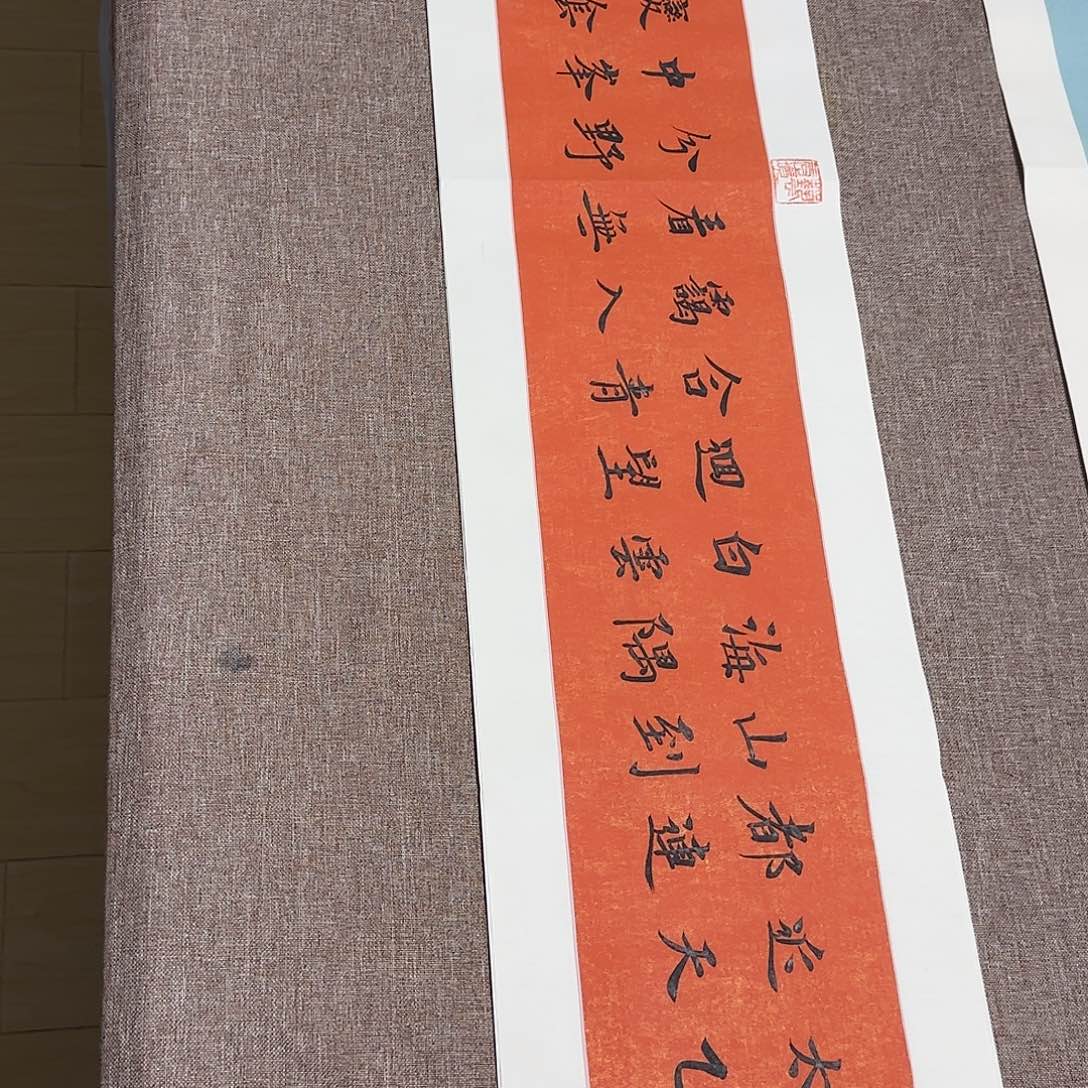 太乙
近天
都連
山到
海隅
白雲
迴望
合青
靄入
看無
分野
中峯
變